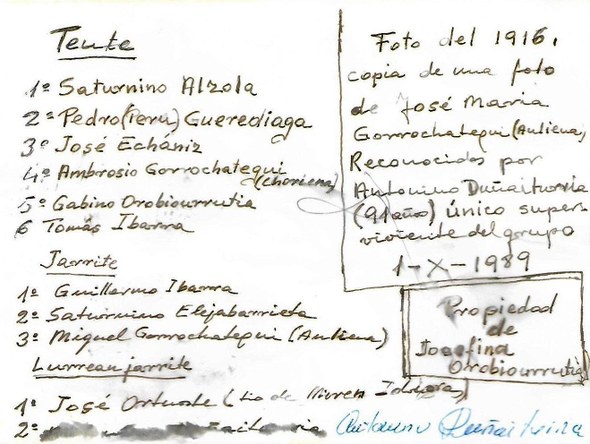 Tente
1º Saturnino Alzola
2º Pedro (Peru) Guerediaga
3º José Echániz
4º Ambrosio Gorrochategui
(choriena)
5º Gabino Orobiourrutia
6 Tomás Ibarra
Jarrite
1º Guillermo Ibarra
2º Saturnino Elejabarrieta
3º Miguel Gorrochategui (Auliena)
Lurrean jarrite
1º José Ortuoste (tio de
2º
Foto del 1916,
copia de una foto
de José Maria
Gorrochategui (Auliena)
Reconocidos por
Antonino Duñaiturria
(91 años) único super-
viviente del grupo
1-X-1989
Propiedad
de
Josefina
Orobiourrutia